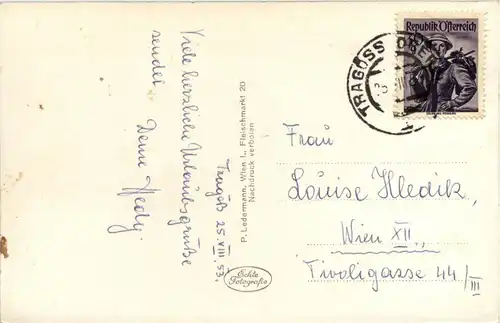 Tragöß 25. VIII. 53.
Viele herzliche Urlaubsgrüße
sendet
Deine Hedy.
P. Ledermann, Wien I., Fleischmarkt 20
Nachdruck verboten
Echte
Fotografie
Republik Österreich
TRAGÖSS
Frau
Louise Hledik,
Wien XII.,
Tivoligasse 44/III